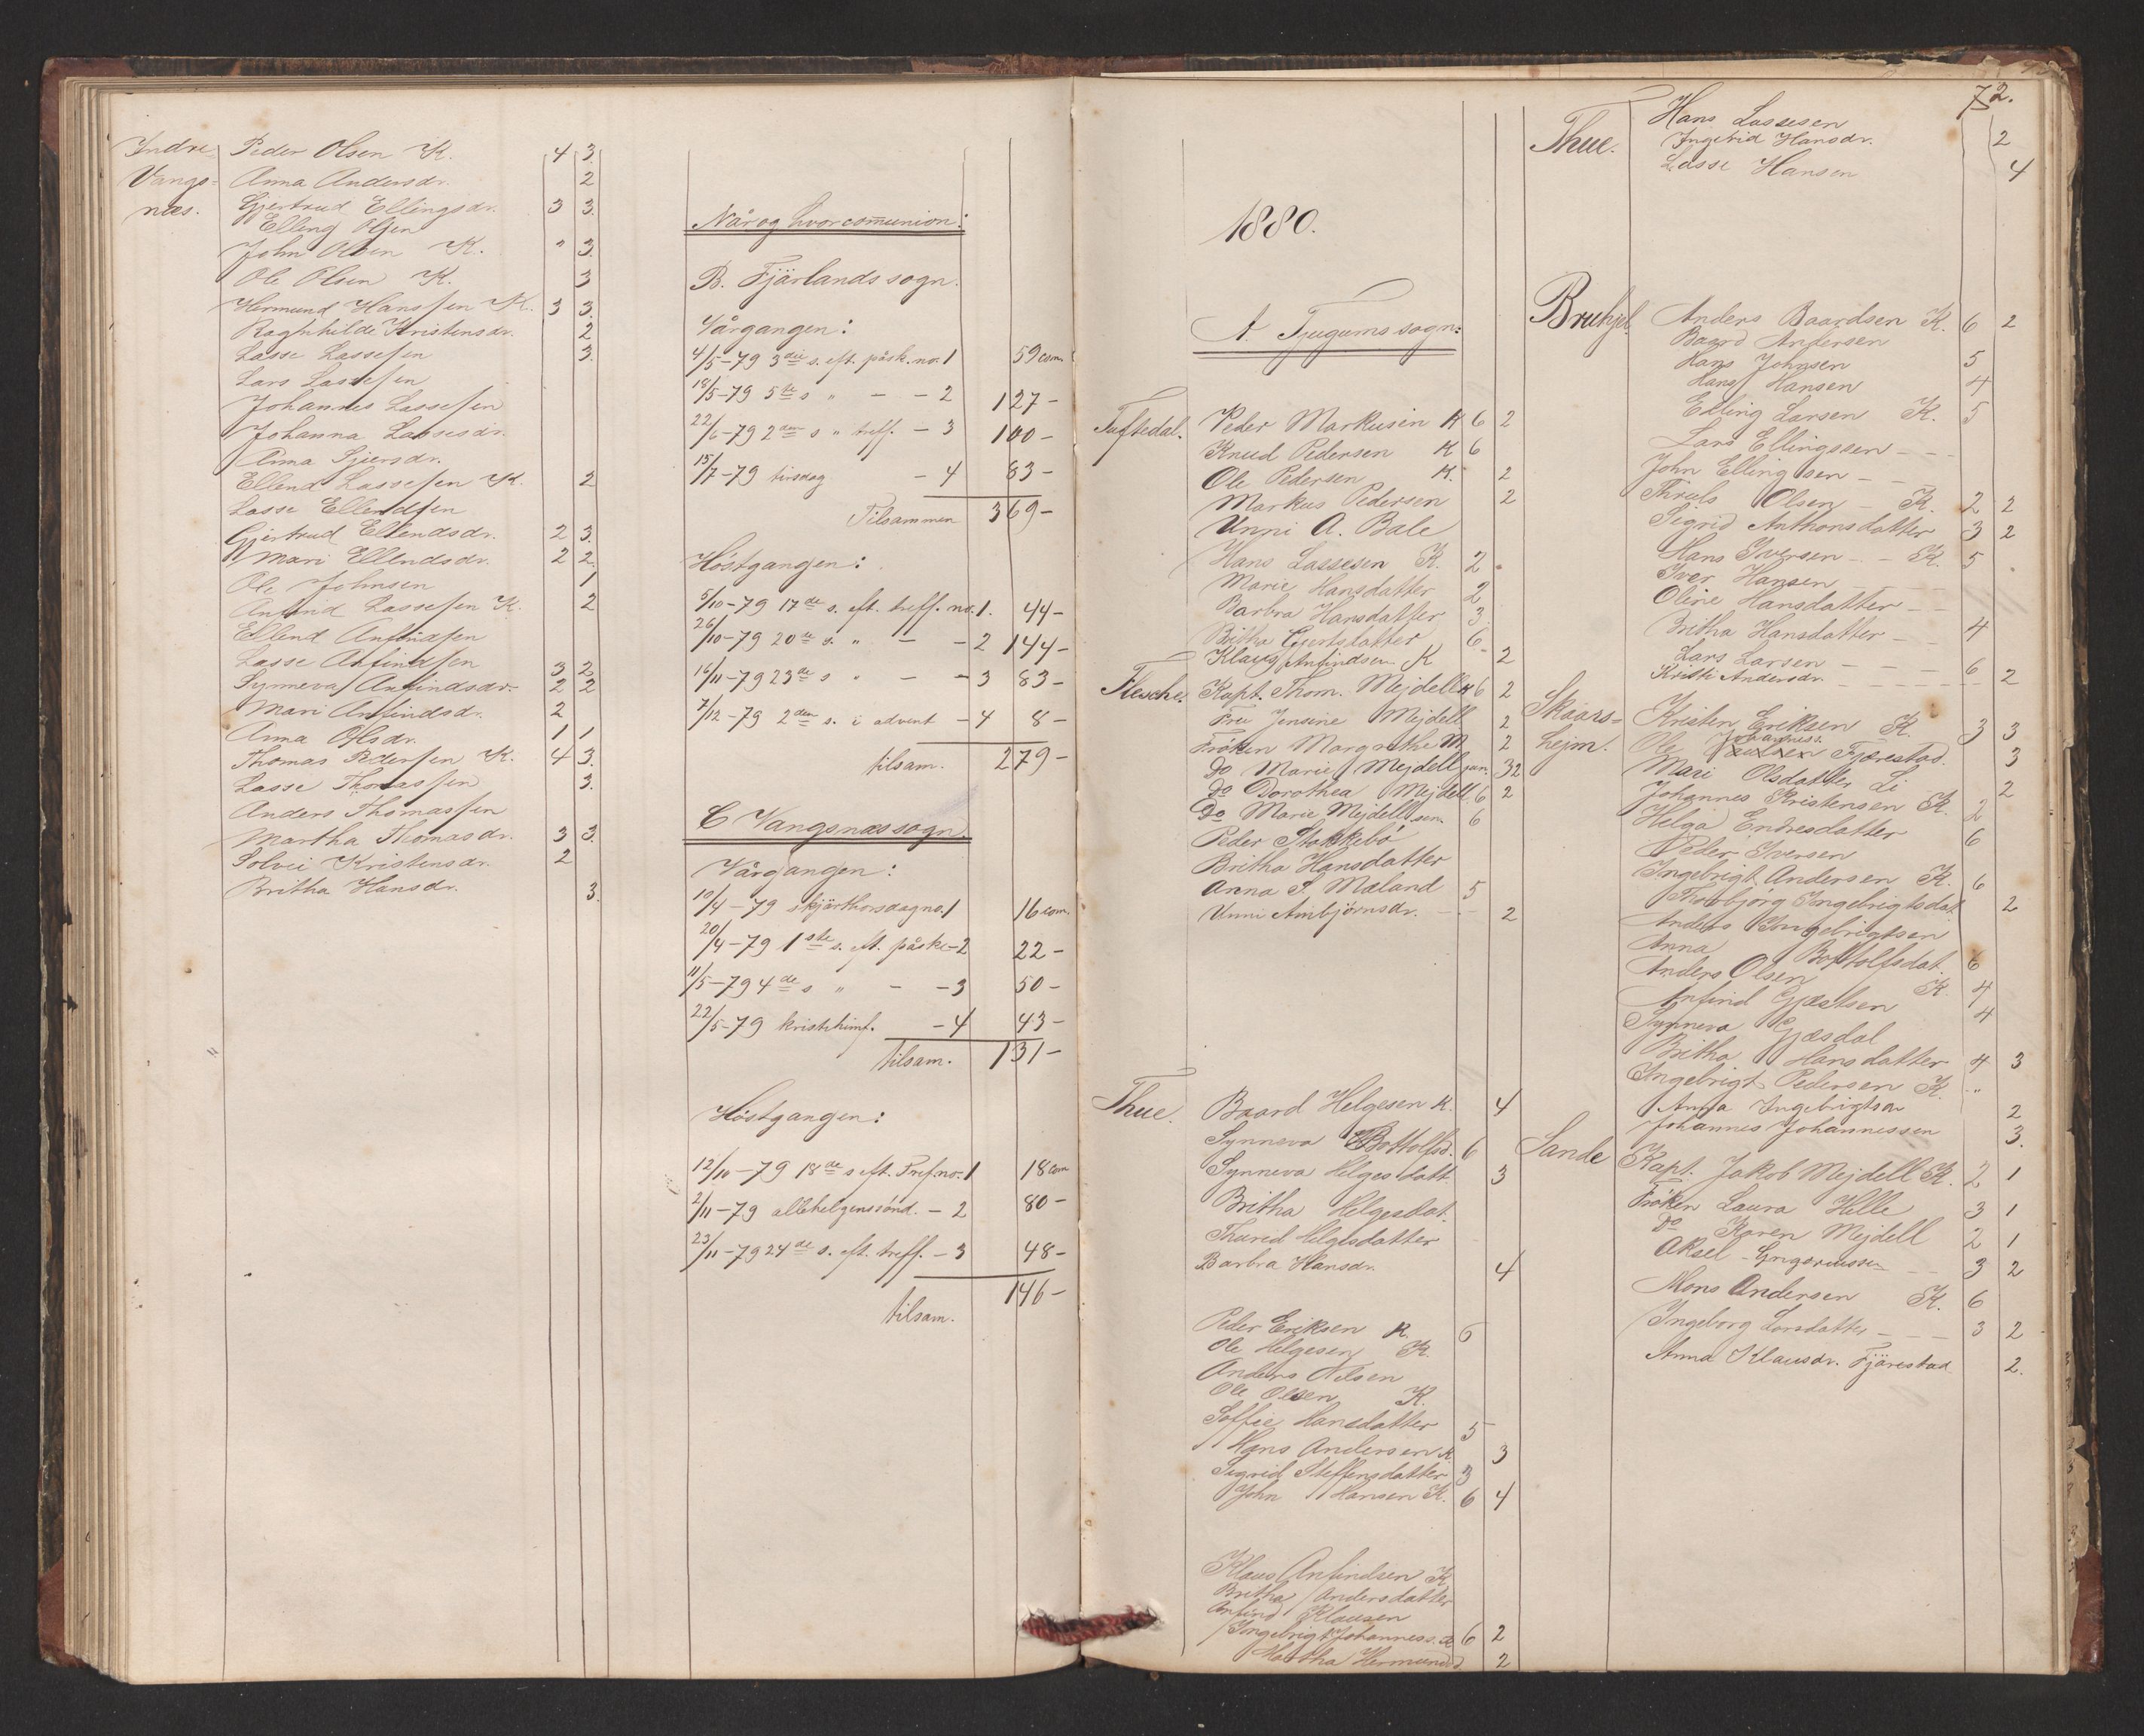 Indre Peder Olsen K. 4 3.
Vangs- Anna Andersdr. 2
næs. Gjertrud Ellingsdr. 3 3.
Elling Olsen
John Olsen K. " 3.
Ole Olsen K. 3
Hermund Hanssen K. 3 3.
Raghnhilde Kristensdr. 2
Lasse Lassesen 3.
Lars Lassesen
Johannes Lassesen
Johanna Lassesdr.
Anna Sjursdr.
Ellend Lassesen K. 2
Lasse Ellendsen
Gjertrud Ellendsdr. 2 3.
Mari Ellendsdr. 2 2.
Ole Johnsen 1
Anfind Lassesen K. 2
Ellend Anfindsen
Lasse Anfindsen 3 2
Synneva Anfindsdr. 2 2
Mari Anfindsdr. 2
Anna Olsdr. 1 1
Thomas Pedersen K. 4 3.
Lasse Thomassen 3.
Anders Thomassen
Martha Thomasdr. 3 3.
Solvei Kristensdr. 2
Britha Hansdr. 3.
Når og hvor communion:
B. Fjärlands sogn.
Vårgangen:
4/5-79 3die s. eft. påsk. no. 1 59 com.
18/5-79 5te s " - - 2 127-
22/6-79 2den s " treff. - 3 100-
15/7-79 tirsdag - 4 83-
Tilsammen 369-
Höstgangen:
5/10-79 17de s. eft. treff. no. 1. 44-
26/10-79 20de s. " - - 2 144-
16/11-79 23de s " - - 3 83-
7/12-79 2den s. i advent - 4 8-
tilsam. 279-
C Vangsnæs sogn
Vårgangen:
10/4-79 skjärthorsdag no. 1 16 com.
20/4-79 1ste s. eft. påske - 2 22-
11/5-79 4de s " - - 3 50-
22/5-79 kristi himf. - 4 43-
tilsam. 131-
Höstgangen:
12/10-79 18de s eft. Tref. no. 1 18 com
2/11-79 allehelgenssönd. - 2 80-
23/11-79 24de s. eft. treff. - 3 48-
tilsam. 146-
1880.
A. Tjugums sogn:
Tuftedal. Peder Markusen K 6 2
Knud Pedersen K 6
Ole Pedersen K. 2
Markus Pedersen 2
Unni A. Bale
Hans Lassesen K. 2
Marie Hansdatter 2
Barbra Hansdatter 3.
Britha Gjertsdatter 6
Klaus Anfindsen K 2
Flesche. Kapt. Thom. Mejdell K 6 2
Frue Jensine Mejdell 2
Fröken Margrethe M. 2
do Marie Mejdell jun. 3 2
do Dorothea Mejdell 6 2
do Marie Mejdell sen. 6
Peder Stokkebö
Britha Hansdatter
Anna S. Mæland 5
Unni Ambjörnsdr. - - 2
Thue. Baard Helgesen K. 4
Synneva Bottolfsd. 6
Synneva Helgesdatt. 3
Britha Helgesdat.
Thurid Helgesdatter
Barbra Hansdr. 4
Peder Eriksen K. 6
Ole Helgesen K.
Anders Nilsen
Ole Olsen K.
Soffie Hansdatter 5
Hans Andersen K 3
Sigrid Steffensdatter 3
John Hansen K. 6 4
Klaus Anfindsen K
Britha Andersdatter
Anfind Klausen
Ingebrigt Johanness. K 6 2
Martha Hermundsd 2
72.
Thue. Hans Lassesen
Ingebrid Hansdr. 2
Lasse Hansen 4
Anders Baardsen K. 6 2
Baard Andersen
Hans Johnsen 5
Hans Hansen 4
Elling Larsen K. 5
Lars Ellingssen - - -
John Ellingsen - -
Thruls Olsen - K. 2 2
Sigrid Anthonsdatter 3 2
Hans Iversen - - K. 5
Iver Hansen - - -
Oline Hansdatter - -
Britha Hansdatter - 4
Lars Larsen - - - 6
Kristi Andersdr. - - - 2
Skaars- Kristen Eriksen K. 3 3
hejm. Ole Johanness. Fjærestad. 3
Mari Olsdatter Li 2
Johannes Kristensen K. 2
Helga Endresdatter 6
Peder Iversen
Ingebrigt Andersen K. 6
Thorbjörg Ingebrigtsdat. 2
Anders Ingebrigtsen
Anna Bottolfsdat. 6
Anders Olsen K. 4
Anfind Gjæltsen 4
Synneva Gjæsdal
Britha Hansdatter 4 3
Ingebrigt Pedersen K. "
Anna Ingebrigtsdr 2
Johannes Johannessen 3.
Sande Kapt. Jakob Mejdell K. 2 1
Fröken Laura Helle 3 1
do Karen Mejdell 2 1
Aksel - - - 3 2
Mons Andersen K. 6
Ingeborg Larsdatter - - - 3 2
Anna Klausdr. Fjärestad 2.